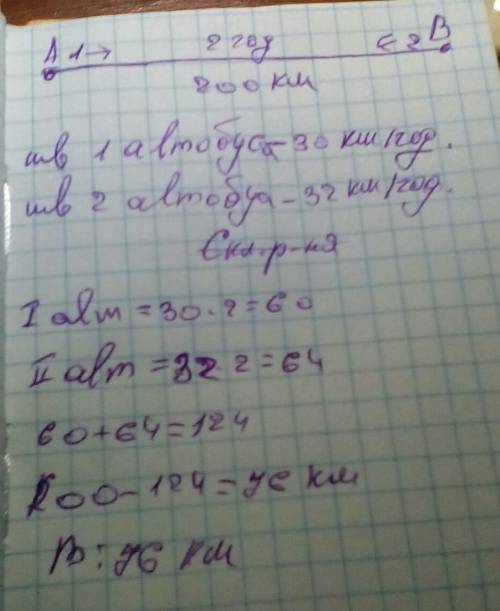 А 1→ 2 год ←2 В
200 км
шв 1 автобуса - 30 км/год.
шв 2 автобуа - 32 км/год.
Скл-р-ня
I авт = 30 · 2 = 60
II авт = 32 2 = 64
60+64=124
200-124=76 км
В: 76 км